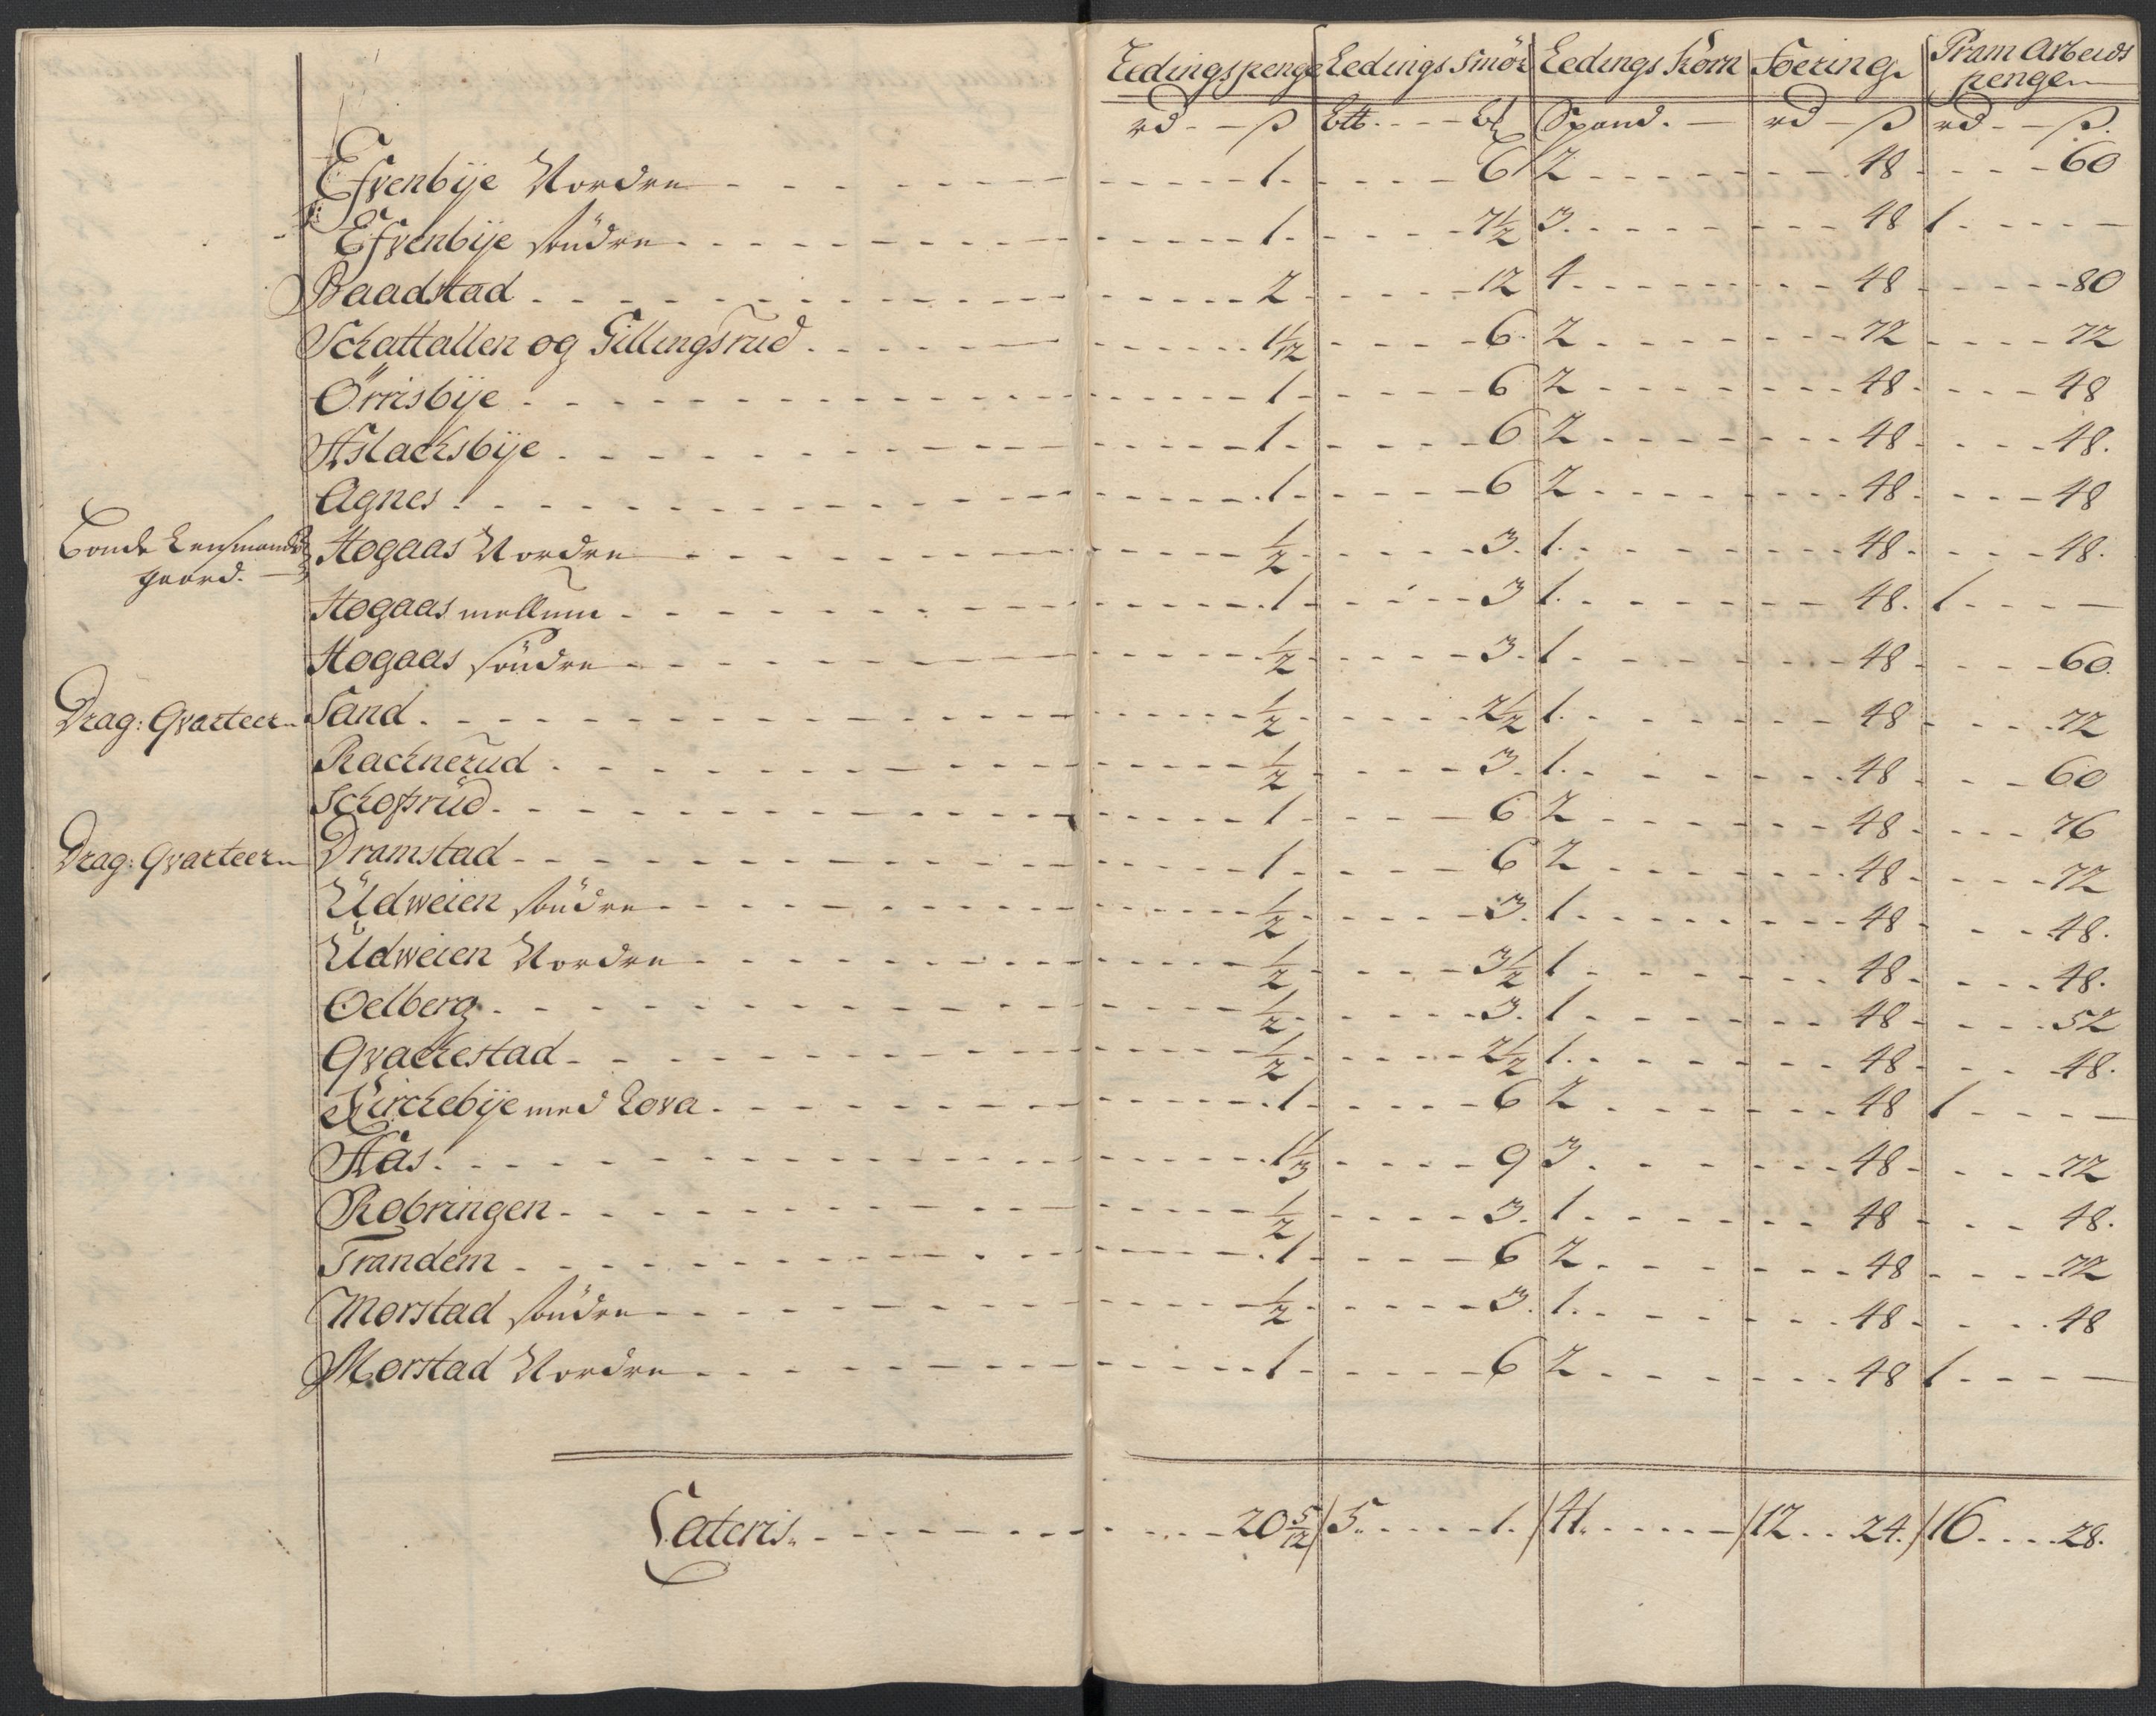 Ledingspenge Ledings Smör Ledings Korn Foering Pram Arbeids
pengen
rd - - ß Btt. - - - Bl Spand. - rd - ß rd - - ß.
Efvenbÿe Nordre 1. 6 2 48 60
Efvenbÿe söndre 1. 7½ 3. 48 1 -
Baadstad 2 12 4 48 80
Schattallen og Gillingsrud 1 1/12 6. 2 72 72
Örrisbÿe 1 6 2 48 48
Aslachsbÿe 1 6 2 48 48.
Agnes 1 6 2 48 48
Bonde Lensmands Høgaas Nordre ½ 3. 1. 48 48.
gaard.
Høgaas mellum 1 3 1. 48. 1 -
Høgaas söndre ½ 3. 1 48 60.
Drag: Qvarteer Sand ½ 2½ 1. 48 72
Rachnerud ½ 3. 1. 48 60
Schoßrud 1 6 2 48 76
Drag: Qvarteer Dramstad 1 6 2 48 72
Udweien söndre ½ 3. 1 48 48.
Udweien Nordre ½ 3½ 1 48 48.
Oelberg ½ 3. 1 48 52
Qvackestad ½ 2½ 1. 48 48.
Kirckebÿe med Lova 1 6 2 48 1 -
Aas 1⅓ 9 3 48 72
Robringen ½ 3. 1 48 48.
Trandem 1 6 2 48 72
Morstad söndre ½ 3. 1. 48 48
Morstad Nordre 1 6 2 48 1 -
Lateris 20 5/12 / 5. 1. / 41. / 12 24. / 16 28.